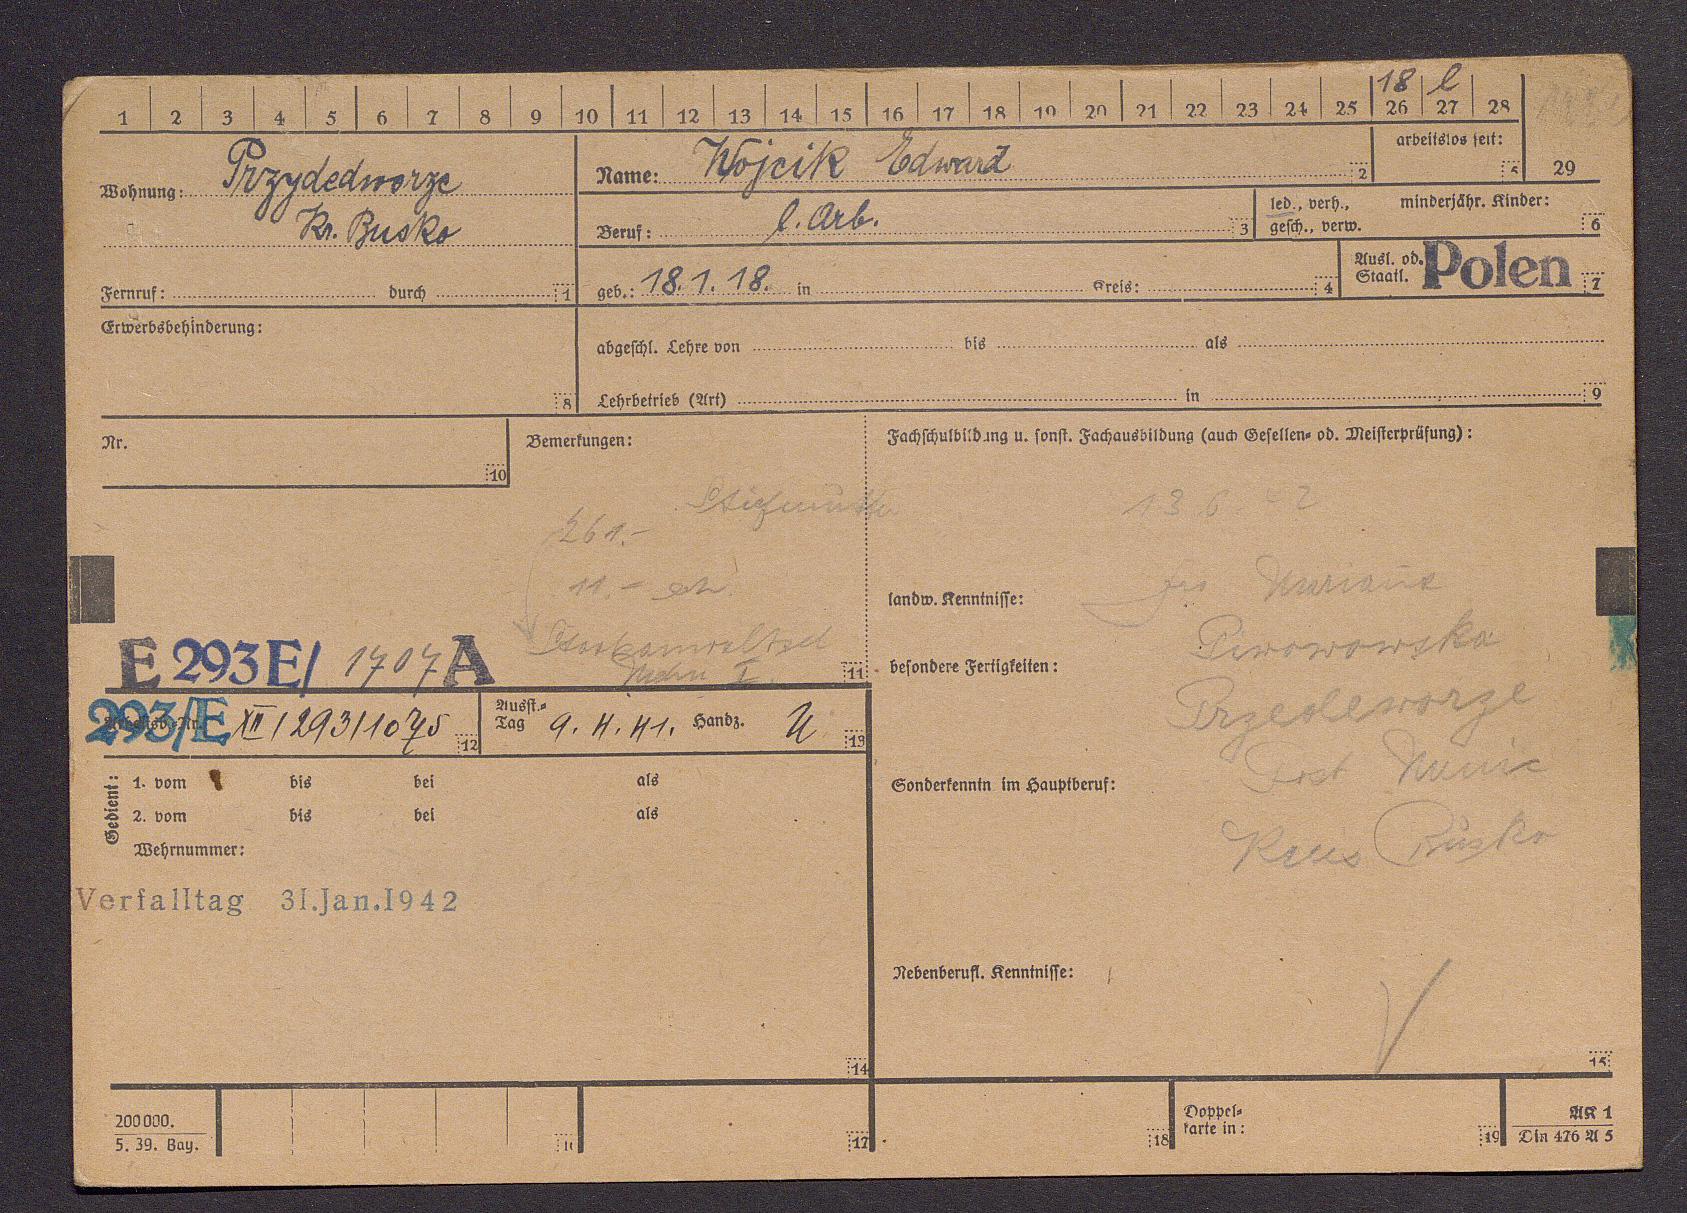 18 l
1 2 3 4 5 6 7 8 9 10 11 12 13 14 15 16 17 18 19 20 21 22 23 24 25 26 27 28
arbeitslos seit: 5
29
Wohnung: Przydedworze
Kr. Busko
Fernruf: durch 1
Name: Wojcik Edward 2
Beruf: l. Arb. 3
led., verh., minderjähr. Kinder:
gesch., verw. 6
geb.: 18. 1. 18. in Kreis: 4
Ausl. od. Staatl. Polen 7
Erwerbsbehinderung:
8
abgeschl. Lehre von bis als
Lehrbetrieb (Art) in 9
Nr.
10
Bemerkungen:
Stiefmutter
261.-
11.-
Staatsanwaltsch
I.
11
E 293 E/ 1707 A
293/E
Arbeitsb.-Nr. XII/293/1075 12
Ausst.-
Tag 9. 4. 41. Handz. 13
Gedient:
1. vom bis bei als
2. vom bis bei als
Wehrnummer:
Verfalltag 31.Jan.1942
14
Fachschulbildung u. sonst. Fachausbildung (auch Gesellen- od. Meisterprüfung):
13 6 42
landw. Kenntnisse:
besondere Fertigkeiten:
Piwowowska
Przedeworze
Sonderkenntn im Hauptberuf:
Post
Kreis Busko
Nebenberufl. Kenntnisse:
15
200000.
5. 39. Bay.
16
17
18
Doppel-
karte in: 19
AK 1
Din 476 A 5